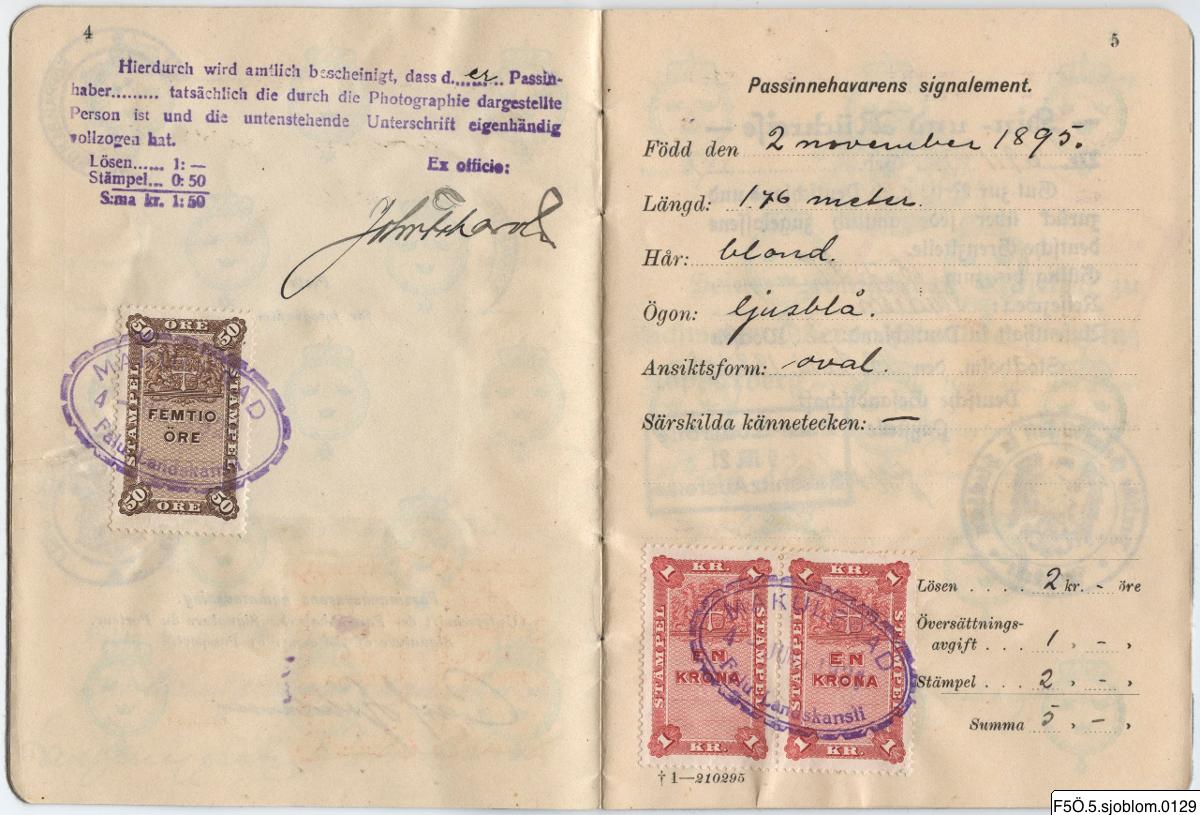 4
Hierdurch wird amtlich bescheinigt, dass d...er... Passin-
haber......... tatsächlich die durch die Photographie dargestellte
Person ist und die untenstehende Unterschrift eigenhändig
vollzogen hat.
Lösen...... 1: —
Stämpel... 0: 50
S:ma kr. 1: 50
Ex officio:
50 ÖRE 50
STÄMPEL
FEMTIO
ÖRE
STÄMPEL
50 ÖRE 50
MAKULERAD
4
Falu Landskansli
5
Passinnehavarens signalement.
Född den 2 november 1895.
Längd: 1 76 meter.
Hår: blond.
Ögon: ljusblå.
Ansiktsform: oval.
Särskilda kännetecken: —
1 KR. 1
STÄMPEL
EN
KRONA
STÄMPEL
1 KR. 1
1 KR. 1
EN
KRONA
STÄMPEL
1 KR. 1
MAKULERAD
4
Falu Landskansli
Lösen . . . . 2 kr. - öre
Översättnings-
avgift . . . 1 , - ,
Stämpel . . . 2 , - ,
Summa 5 , - ,
† 1—210295
F5Ö.5.sjoblom.0129